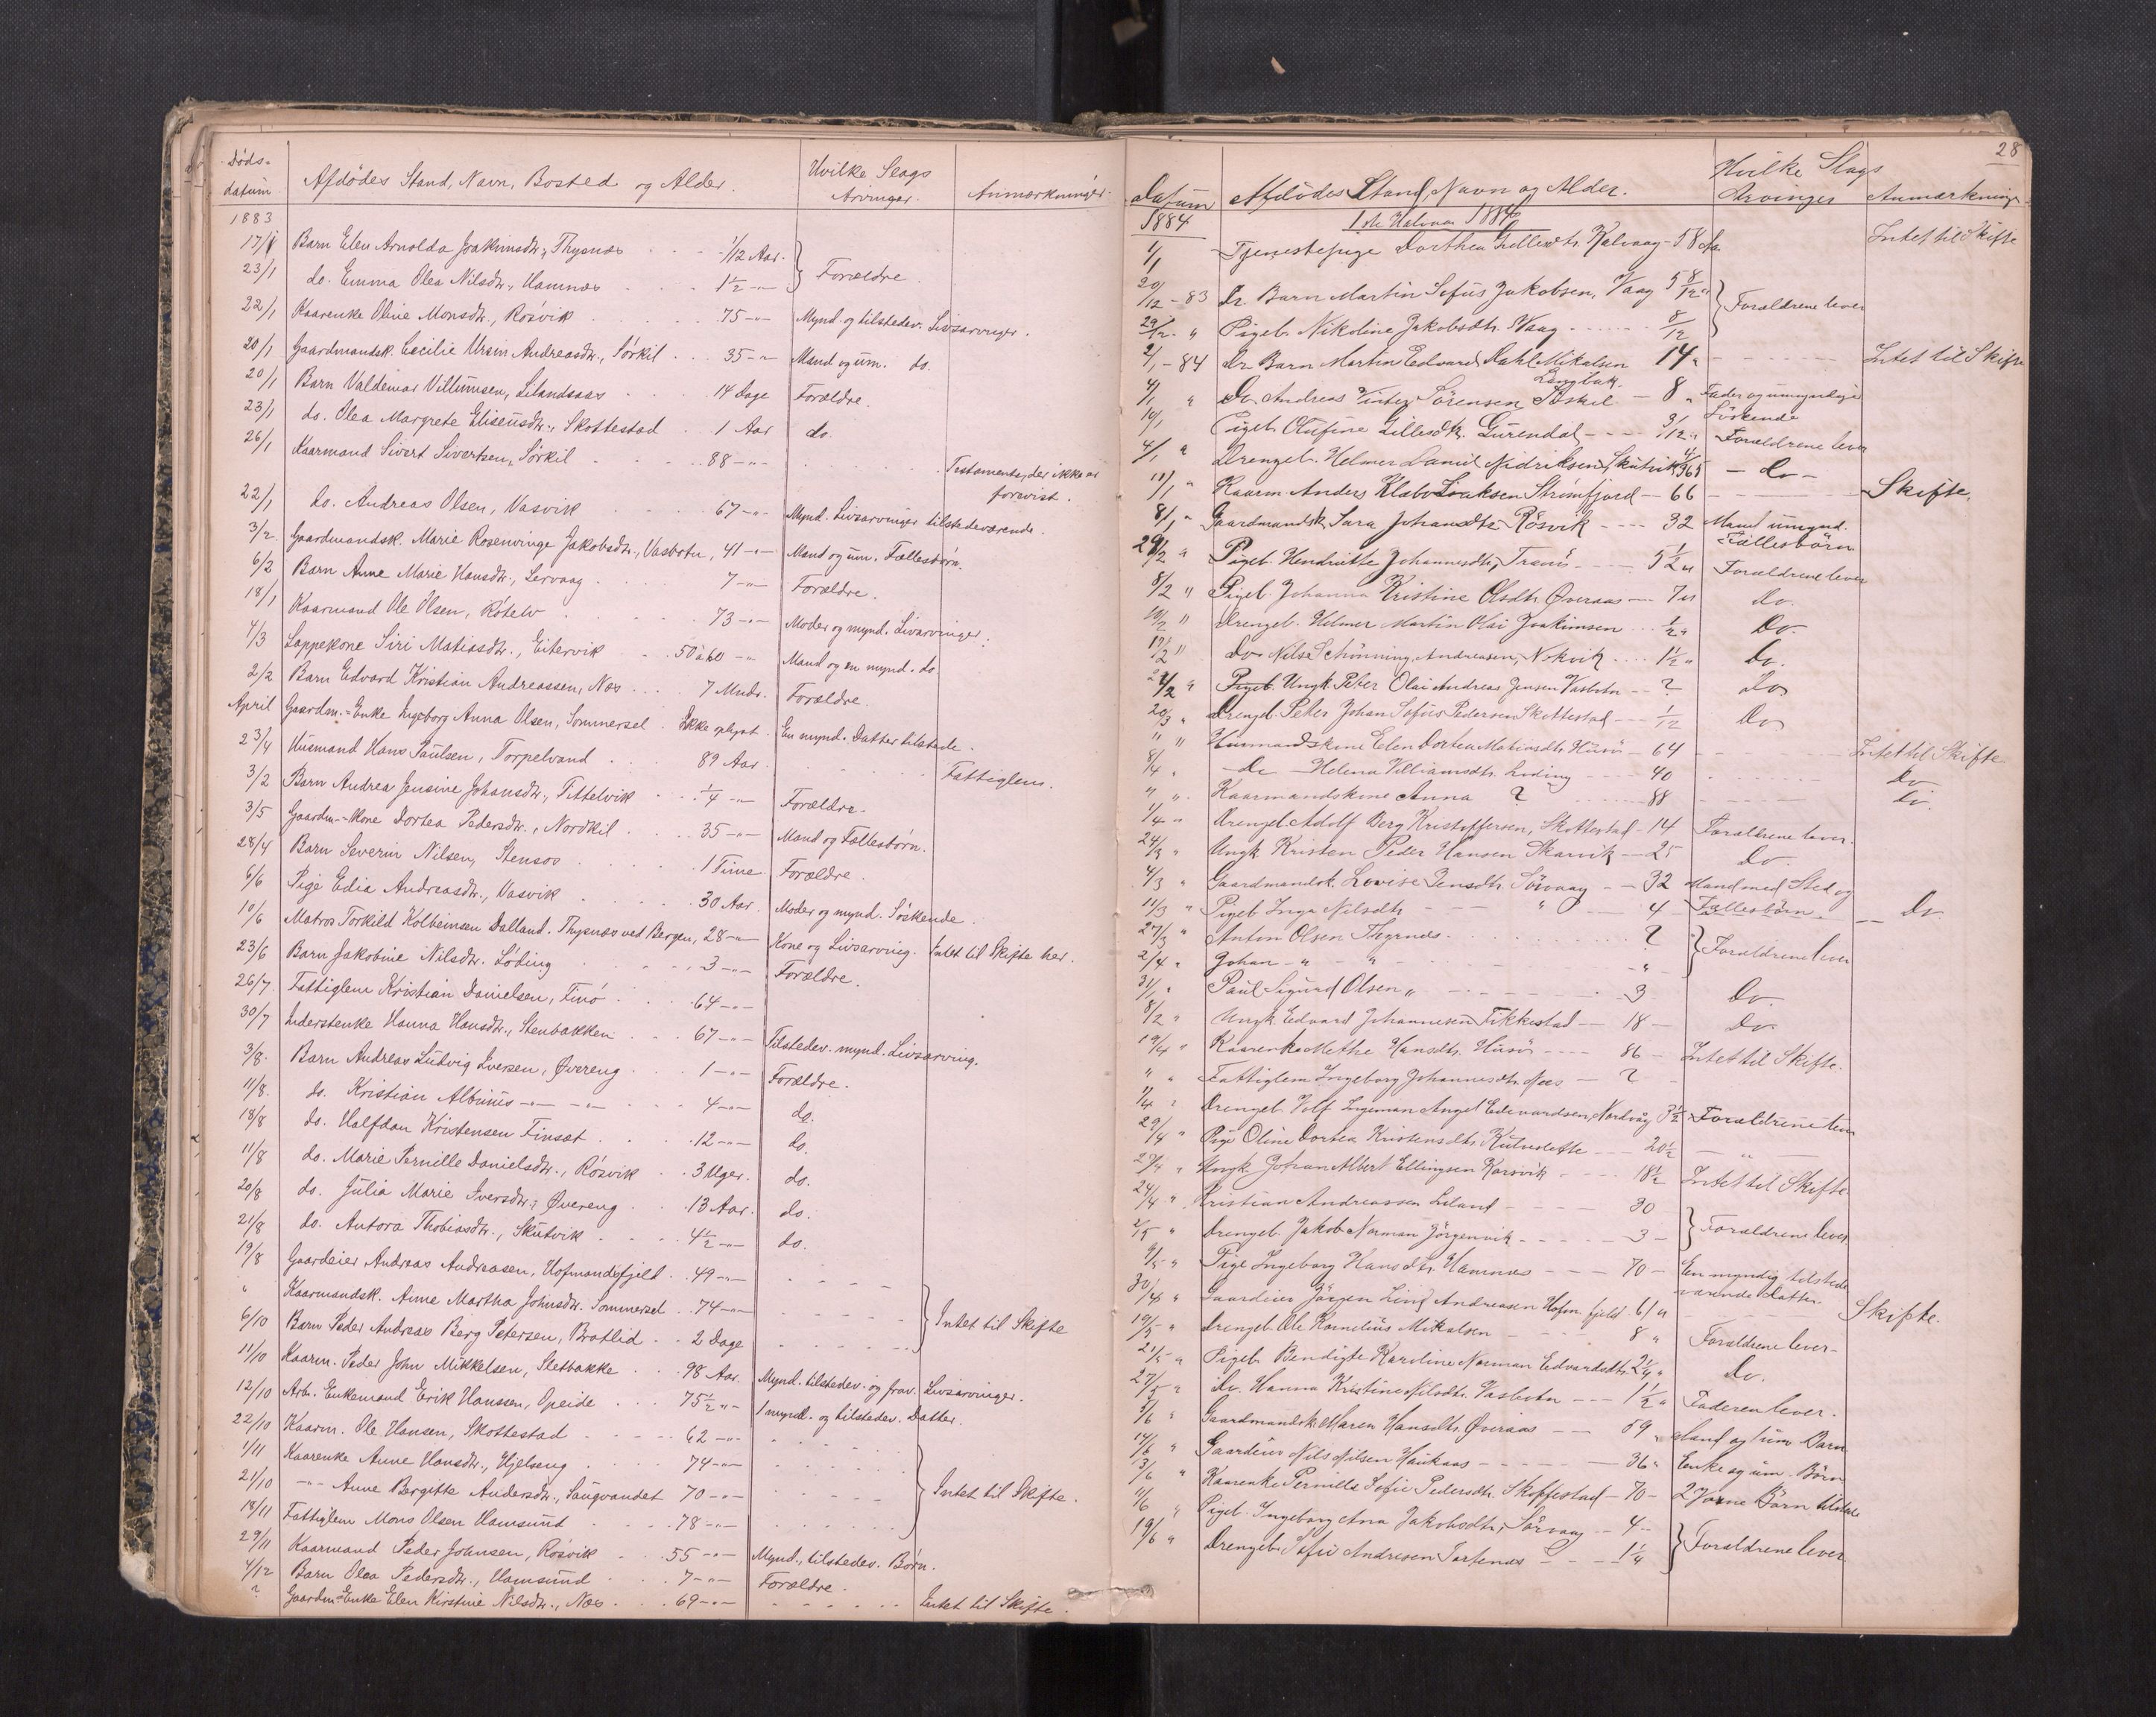 Døds-
datum. Afdødes Stand, Navn, Bosted og Alder. Hvilke Slags Arvinger. Anmærkninger.
1883
17/1 Barn Elen Arnolda Joakimsdtr., Thysnæs 1/12 Aar. } Forældre.
23/1 do. Emma Olea Nilsdtr., Hamnæs 1½ -"-
22/1 Kaarenke Oline Monsdtr., Røsvik 75 -"- Mynd. og tilstedev. Livsarvinger.
20/1 Gaardmandsk. Cecilie Ursin Andreasdtr., Sørkil 35 -"- Mand og um. do.
20/1 Barn Valdemar Villumsen, Lilandsaas 14 Dage Forældre.
23/1 do. Olea Margrete Eliseusdtr., Skottestad 1 Aar do.
26/1 Kaarmand Sivert Sivertsen, Sørkil 88 -"- Testamente, der ikke er
forevist.
22/1 do. Andreas Olsen, Vasvik 67 -"- Mynd. Livsarvinger tilstedeværende.
3/2. Gaardmandsk. Marie Rosenvinge Jakobsdtr., Vasbotn, 41 -"- Mand og um. Fællesbørn.
6/2 Barn Anne Marie Hansdtr., Lervaag 7 -"- Forældre.
18/1 Kaarmand Ole Olsen, Røtelv 73 -"- Moder og mynd. Livsarvinger.
4/3 Lappekone Siri Matiasdtr., Eitervik 50 à 60 -"- Mand og en mynd. do.
2/2 Barn Edvard Kristian Andreassen, Næs 7 Mndr. Forældre.
April Gaardm.-Enke Ingeborg Anna Olsen, Sommersel Ikke oplyst. En mynd. Datter tilstede.
23/4 Husmand Hans Paulsen, Torpelvand 89 Aar. Fattiglem.
3/2 Barn Andrea Jensine Johansdtr., Tittelvik ¼ -"- Forældre.
3/5 Gaardm.-Kone Dortea Pedersdtr., Nordkil 35 -"- Mand og Fællesbørn.
28/4 Barn Severin Nilsen, Stensos 1 Time. Forældre.
6/6 Pige Edia Andreasdtr., Vasvik 30 Aar. Moder og mynd. Søskende.
10/6 Matros Torkild Kolbeinsen Dalland. Thysnæs ved Bergen, 28 -"- Kone og Livsarving. Intet til Skifte her.
23/6 Barn Jakobine Nilsdtr. Løding 3 -"- Forældre.
26/7. Fattiglem Kristian Danielsen, Finø 64 -"-
30/7 Inderstenke Hanna Hansdtr., Stenbakken 67 -"- Tilstedev. mynd. Livsarving.
3/8. Barn Andreas Ludvig Iversen, Øvereng 1 -"- Forældre.
11/8. do. Kristian Albinus -"- -"- 4 -"- do.
18/8 do. Halfdan Kristensen Finsæt 12 -"- do.
11/8 do. Marie Pernille Danielsdtr., Røsvik 3 Uger. do.
20/8 do. Julia Marie Iversdtr., Øvereng 13 Aar. do.
21/8 do. Antora Thobiasdtr., Skutvik 4½ -"- do.
19/8 Gaardeier Andreas Andreasen, Hofmandsfjeld 49 -"-
" Kaarmandsk. Anne Martha Johnsdtr. Sommersel 74 -"- } Intet til Skifte
6/10 Barn Peder Andreas Berg Petersen, Bratlid 2 Dage
11/10 Kaarm. Peder John Mikkelsen, Sletbakke 98 Aar. Mynd. tilstedev. og frav. Livsarvinger.
12/10 Arb. Enkemand Erik Hanssen, Opeide 75½ -"- 1 mynd. og tilstedev. Datter.
22/10 Kaarm. Ole Hansen, Skottestad 62 -"-
1/11 Kaarenke Anne Hansdtr., Hjelseng 74 -"- } Intet til Skifte.
21/10 -"- Anne Bergitte Andersdtr., Saugvandet 70 -"-
18/11 Fattiglem Mons Olsen Hamsund 78 -"-
29/11 Kaarmand Peder Johnsen, Røsvik 55 -"- Mynd., tilstedev. Børn.
4/12 Barn Olea Pedersdtr., Hamsund 7 -"- Forældre.
? Gaardm.-Enke Elen Kirstine Nilsdtr., Næs 69 -"- Intet til Skifte.
28
Datum Afdødes Stand, Navn og Alder. Hvilke Slags Arvinger Anmærkninger
1884 1ste Halvaar 1884
1/1 Tjenestepige Dorthea Gullesdtr. Kalvaag - 58 Aar Intet til Skifte
20/12 - 83 Dr Barn Martin Sofus Jakobsen, Vaag 5 8/12 " } Forældrene lever
29/12 " Pigeb. Nikoline Jakobsdtr. Vaag 8/12
2/1 - 84 Dr Barn Martin Edvard Dahl Mikalsen 14 " Intet til Skifte
Langbak.
4/1 " Do. Andreas Vinter Sørensen Sørkil - 8 " Fader og umyndige
Søskende
10/1 Pigeb. Olufine Lillesdtr. Gurendal - 3/12 " Forældrene lever
4/1 " Drengeb. Helmer Daniel Nidriksen Skutvik 4/365 - Do -
11/1 " Kaarm Anders Klæbo Isaksen Strømfjord - 66 Skifte.
8/1 " Gaardmandsk. Sara Johansdtr Røsvik 32 Mand umynd.
Fællesbørn
28/2 " Pigeb. Hendrikke Johannesdtr, Tranø 5½ " Forældrene lever
8/2 " Pigeb. Johanna Kristine Olsdtr Øveraas 7 " Do.
10/2 " Drengeb. Helmer Martin Olai Joakimsen ½ " Do.
17/2 " Do Nils Schönning Andreasen, Nokvik 1½ " Do.
24/2 " Pigeb. Ungk Peter Olai Andreas Jensen Vasbotn ? Do
20/3 " Drengeb. Peter Johan Sofus Pedersen Skottestad 1/12 Do
" " Husmandskone Elen Dortea Matiasdtr Husø - 64 Intet til Skifte
8/4 " Do - Helena Villiamsdtr. Løding 40 Do
" " Kaarmandskone Anna ? 88 Do.
1/4 " Drengeb. Adolf Berg Kristoffersen, Skottestad - 14 Forældrene lever.
24/3 " Ungk Kristen Peder Hansen Skarvik - 25 Do.
4/3 " Gaardmandsk. Lovise Jensdtr Sørvaag - 32 Mand med Sted og
11/3 " Pigeb Inga Nilsdtr " 4 Fællesbørn. Do
27/3 " Anton Olsen Thysnæs ? } Forældrene lever
2/4 " Johan - " - " - "
31/1 " Paul Sigurd Olsen " 3 Do.
8/2 " Ungk. Edvard Johannesen Fikkestad - 18 - Do
19/4 " Kaarenke Methe Hansdtr. Husø 86 - Intet til Skifte.
" " Fattiglem Ingeborg Johannesdtr. Næs - ?
1/4 " Drengeb. Volf Ingeman Angel Edvardsen, Nordvåg 3½ Forældrene lever
29/4 " Pige Oline Dortea Kristensdtr. Kulvslette 20½ - " -
27/4 " Ungk Johan Albert Ellingsen Korsvik 18½ Intet til Skifte
24/4 " Kristian Andreassen Liland 30
2/5 " Drengeb. Jakob Norman Jörgenvik 3 - } Forældrene lever
9/5 " Pige Ingeborg Hansdtr. Hamnæs 70 - En myndig tilstede
værende Datter
30/4 " Gaardeier Jörgen Lind Andreasen Hofm.fjeld 61 " Skifte.
10/5 " Drengeb. Ole Kornelius Mikalsen 8 " Forældrene lever -
21/5 " Pigeb. Bendigte Karoline Norman Edvardsdtr. 2¼ " Do.
27/5 " Do. Hanna Kristine Nilsdtr. Vasbotn 1½ " Faderen lever.
5/6 " Gaardmandsk Maren Hansdtr. Øveraas 59 " Mand og um Barn
14/6 " Gaardeier Nils Nilsen Haukaas 36 " Enke og um. Börn
3/6 " Kaarenke Pernille Sofie Pedersdtr. Skottestad - 70 - 2 Voxne Börn tilstede
11/6 " Pigeb. Ingeborg Ana Jakobsdtr, Sørvaag - 4 - } Forældrene lever
19/6 " Drengeb. Sofus Andresen 1¼